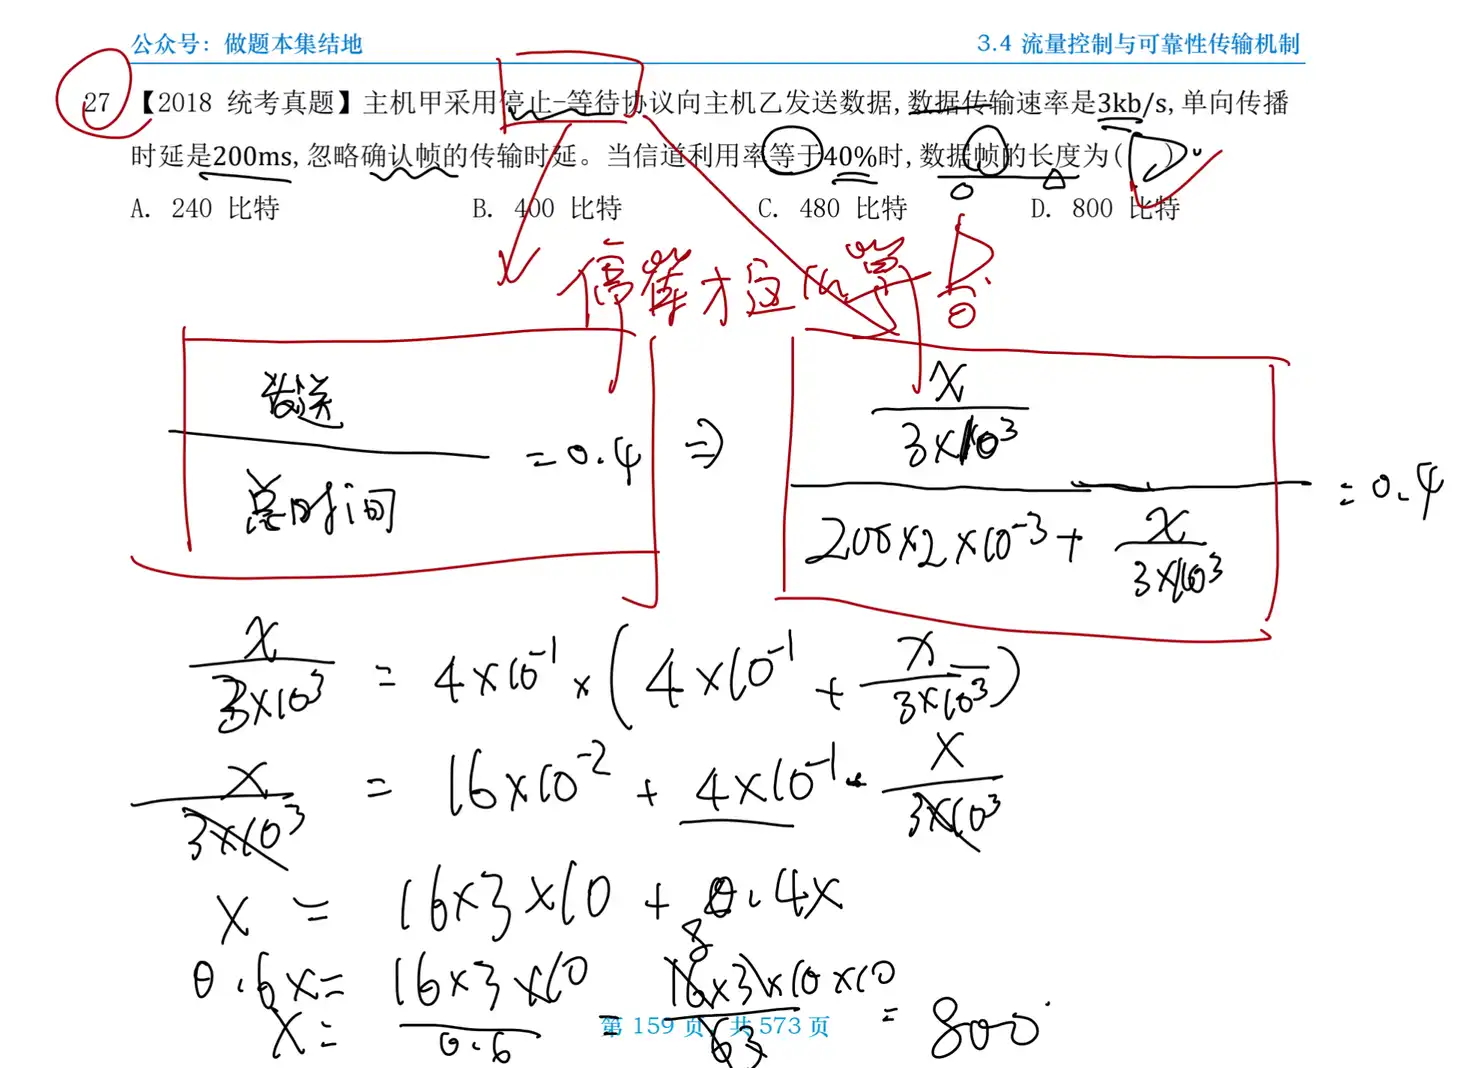 公众号：做题本集结地
3.4 流量控制与可靠性传输机制
27 【2018 统考真题】主机甲采用停止-等待协议向主机乙发送数据，数据传输速率是3kb/s，单向传播
时延是200ms，忽略确认帧的传输时延。当信道利用率等于40%时，数据帧的长度为( D )。
A. 240 比特 B. 400 比特 C. 480 比特 D. 800 比特
停等才这么算
发送 / 总时间 = 0.4 ⇒ (x / 3×10³) / (200×2×10⁻³ + x / 3×10³) = 0.4
x / 3×10³ = 4×10⁻¹ × (4×10⁻¹ + x / 3×10³)
x / 3×10³ = 16×10⁻² + 4×10⁻¹ · x / 3×10³
x = 16×3×10 + 0.4x
8
0.6x = 16×3×10
x = 16×3×10 / 0.6 = 16×3×10×10 / 63 = 800
第 159 页，共 573 页